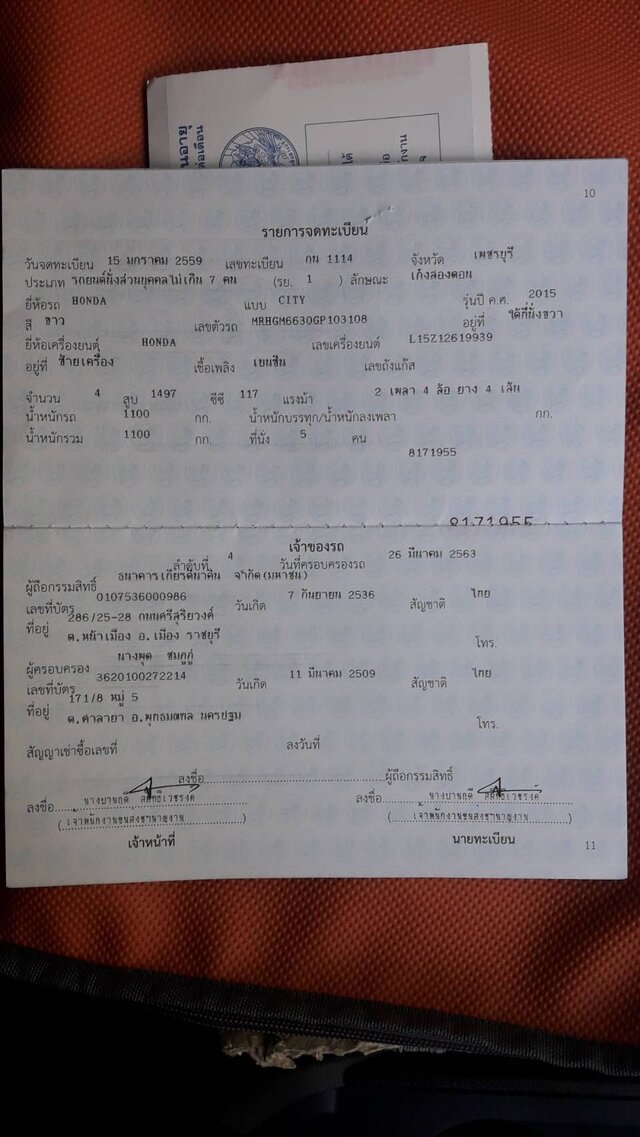 นอายุ
ต่อเดือน
10
รายการจดทะเบียน
วันจดทะเบียน 15 มกราคม 2559 เลขทะเบียน กน 1114 จังหวัด เพชรบุรี
ประเภท รถยนต์นั่งส่วนบุคคลไม่เกิน 7 คน (รย. 1 ) ลักษณะ เก๋งสองตอน
ยี่ห้อรถ HONDA แบบ CITY รุ่นปี ค.ศ. 2015
สี ขาว เลขตัวรถ MRHGM6630GP103108 อยู่ที่ ใต้ที่นั่งขวา
ยี่ห้อเครื่องยนต์ HONDA เลขเครื่องยนต์ L15Z12619939
อยู่ที่ ซ้ายเครื่อง เชื้อเพลิง เบนซิน เลขถังแก๊ส
จำนวน 4 สูบ 1497 ซีซี 117 แรงม้า 2 เพลา 4 ล้อ ยาง 4 เส้น
น้ำหนักรถ 1100 กก. น้ำหนักบรรทุก/น้ำหนักลงเพลา กก.
น้ำหนักรวม 1100 กก. ที่นั่ง 5 คน
8171955
8171955
เจ้าของรถ
ลำดับที่ 4 วันที่ครอบครองรถ 26 มีนาคม 2563
ผู้ถือกรรมสิทธิ์ ธนาคารเกียรตินาคิน จำกัด(มหาชน)
เลขที่บัตร 0107536000986 วันเกิด 7 กันยายน 2536 สัญชาติ ไทย
ที่อยู่ 286/25-28 ถนนศรีสุริยวงค์
ต.หน้าเมือง อ.เมือง ราชบุรี โทร.
ผู้ครอบครอง นางพุด ชมภูกู่
เลขที่บัตร 3620100272214 วันเกิด 11 มีนาคม 2509 สัญชาติ ไทย
ที่อยู่ 171/8 หมู่ 5
ต.ศาลายา อ.พุทธมณฑล นครปฐม โทร.
สัญญาเช่าซื้อเลขที่ ลงวันที่
ลงชื่อ ผู้ถือกรรมสิทธิ์
ลงชื่อ ลงชื่อ
(เจ้าพนักงานขนส่งชำนาญงาน) (เจ้าพนักงานขนส่งชำนาญงาน)
เจ้าหน้าที่ นายทะเบียน
11